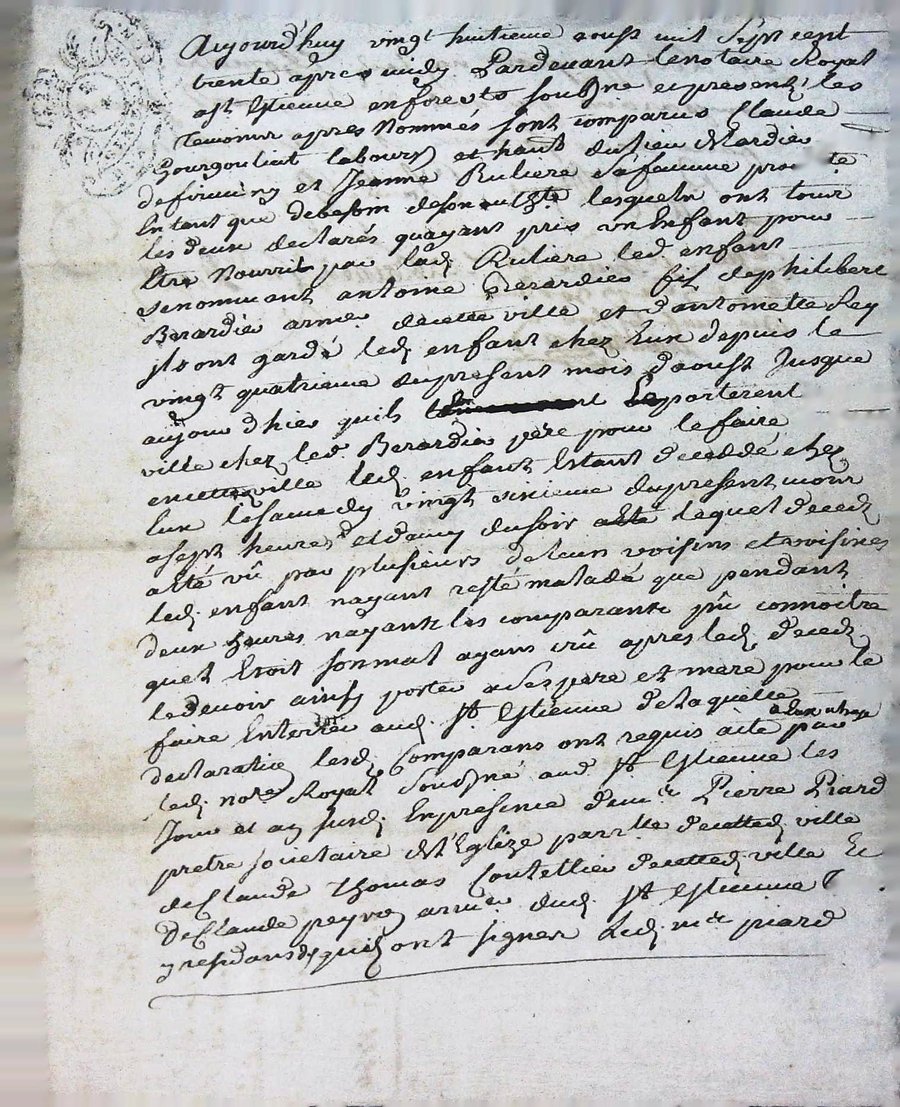 Aujourd'huy vingt huitieme aoust mil sept cent
trente apres midy Pardevant le notaire Royal
a St Estienne en forests soussigné et presents les
temoins apres Nommés sont comparus Claude
Gourgouliat labour et hant du lieu
de firminy et Jeanne Ruliere sa femme
En tant que de besoin de son auth.te lesquels ont tous
les deux declarés quayant pris un Enfant pour
Etre Nourrit par lad. Ruliere led. enfant
se nommant antoine Berardier fils de philibert
Berardie armu.er de cette ville et d'antoinette Rey
ils ont gardé led. enfant chez Eux depuis le
vingt quatrieme du present mois d'aoust Jusque
aujourd'hier quils Le porterent
ville chez led. Berardie père pour le faire
en cette ville led. enfant Estant decedé chez
Eux le samedy vingt sixieme du present mois
a sept heures et demy du soir lequel deced
a êté vû par plusieurs de leurs voisins et voisines
led. enfant nayant resté malade que pendant
deux heures nayants les comparants pû connoitre
quel Etoit son mal ayans crû apres led. deced
le devoir ainsy porter a ses pere et mere pour le
faire Enterrer aud. St Estienne de laquelle
declaration lesd. Comparans ont requis acte par
led. no.re Royal Soussigné aud. St Estienne les
Jour et an susd. En presence de m.re Pierre Piard
pretre societaire de l'Eglize parr.lle de cetted. ville
de Claude Thomas Coutellier de cetted. ville Et
De Claude peyre armu.er dud. St Estienne
y residans qui ont signer led. m.re piard